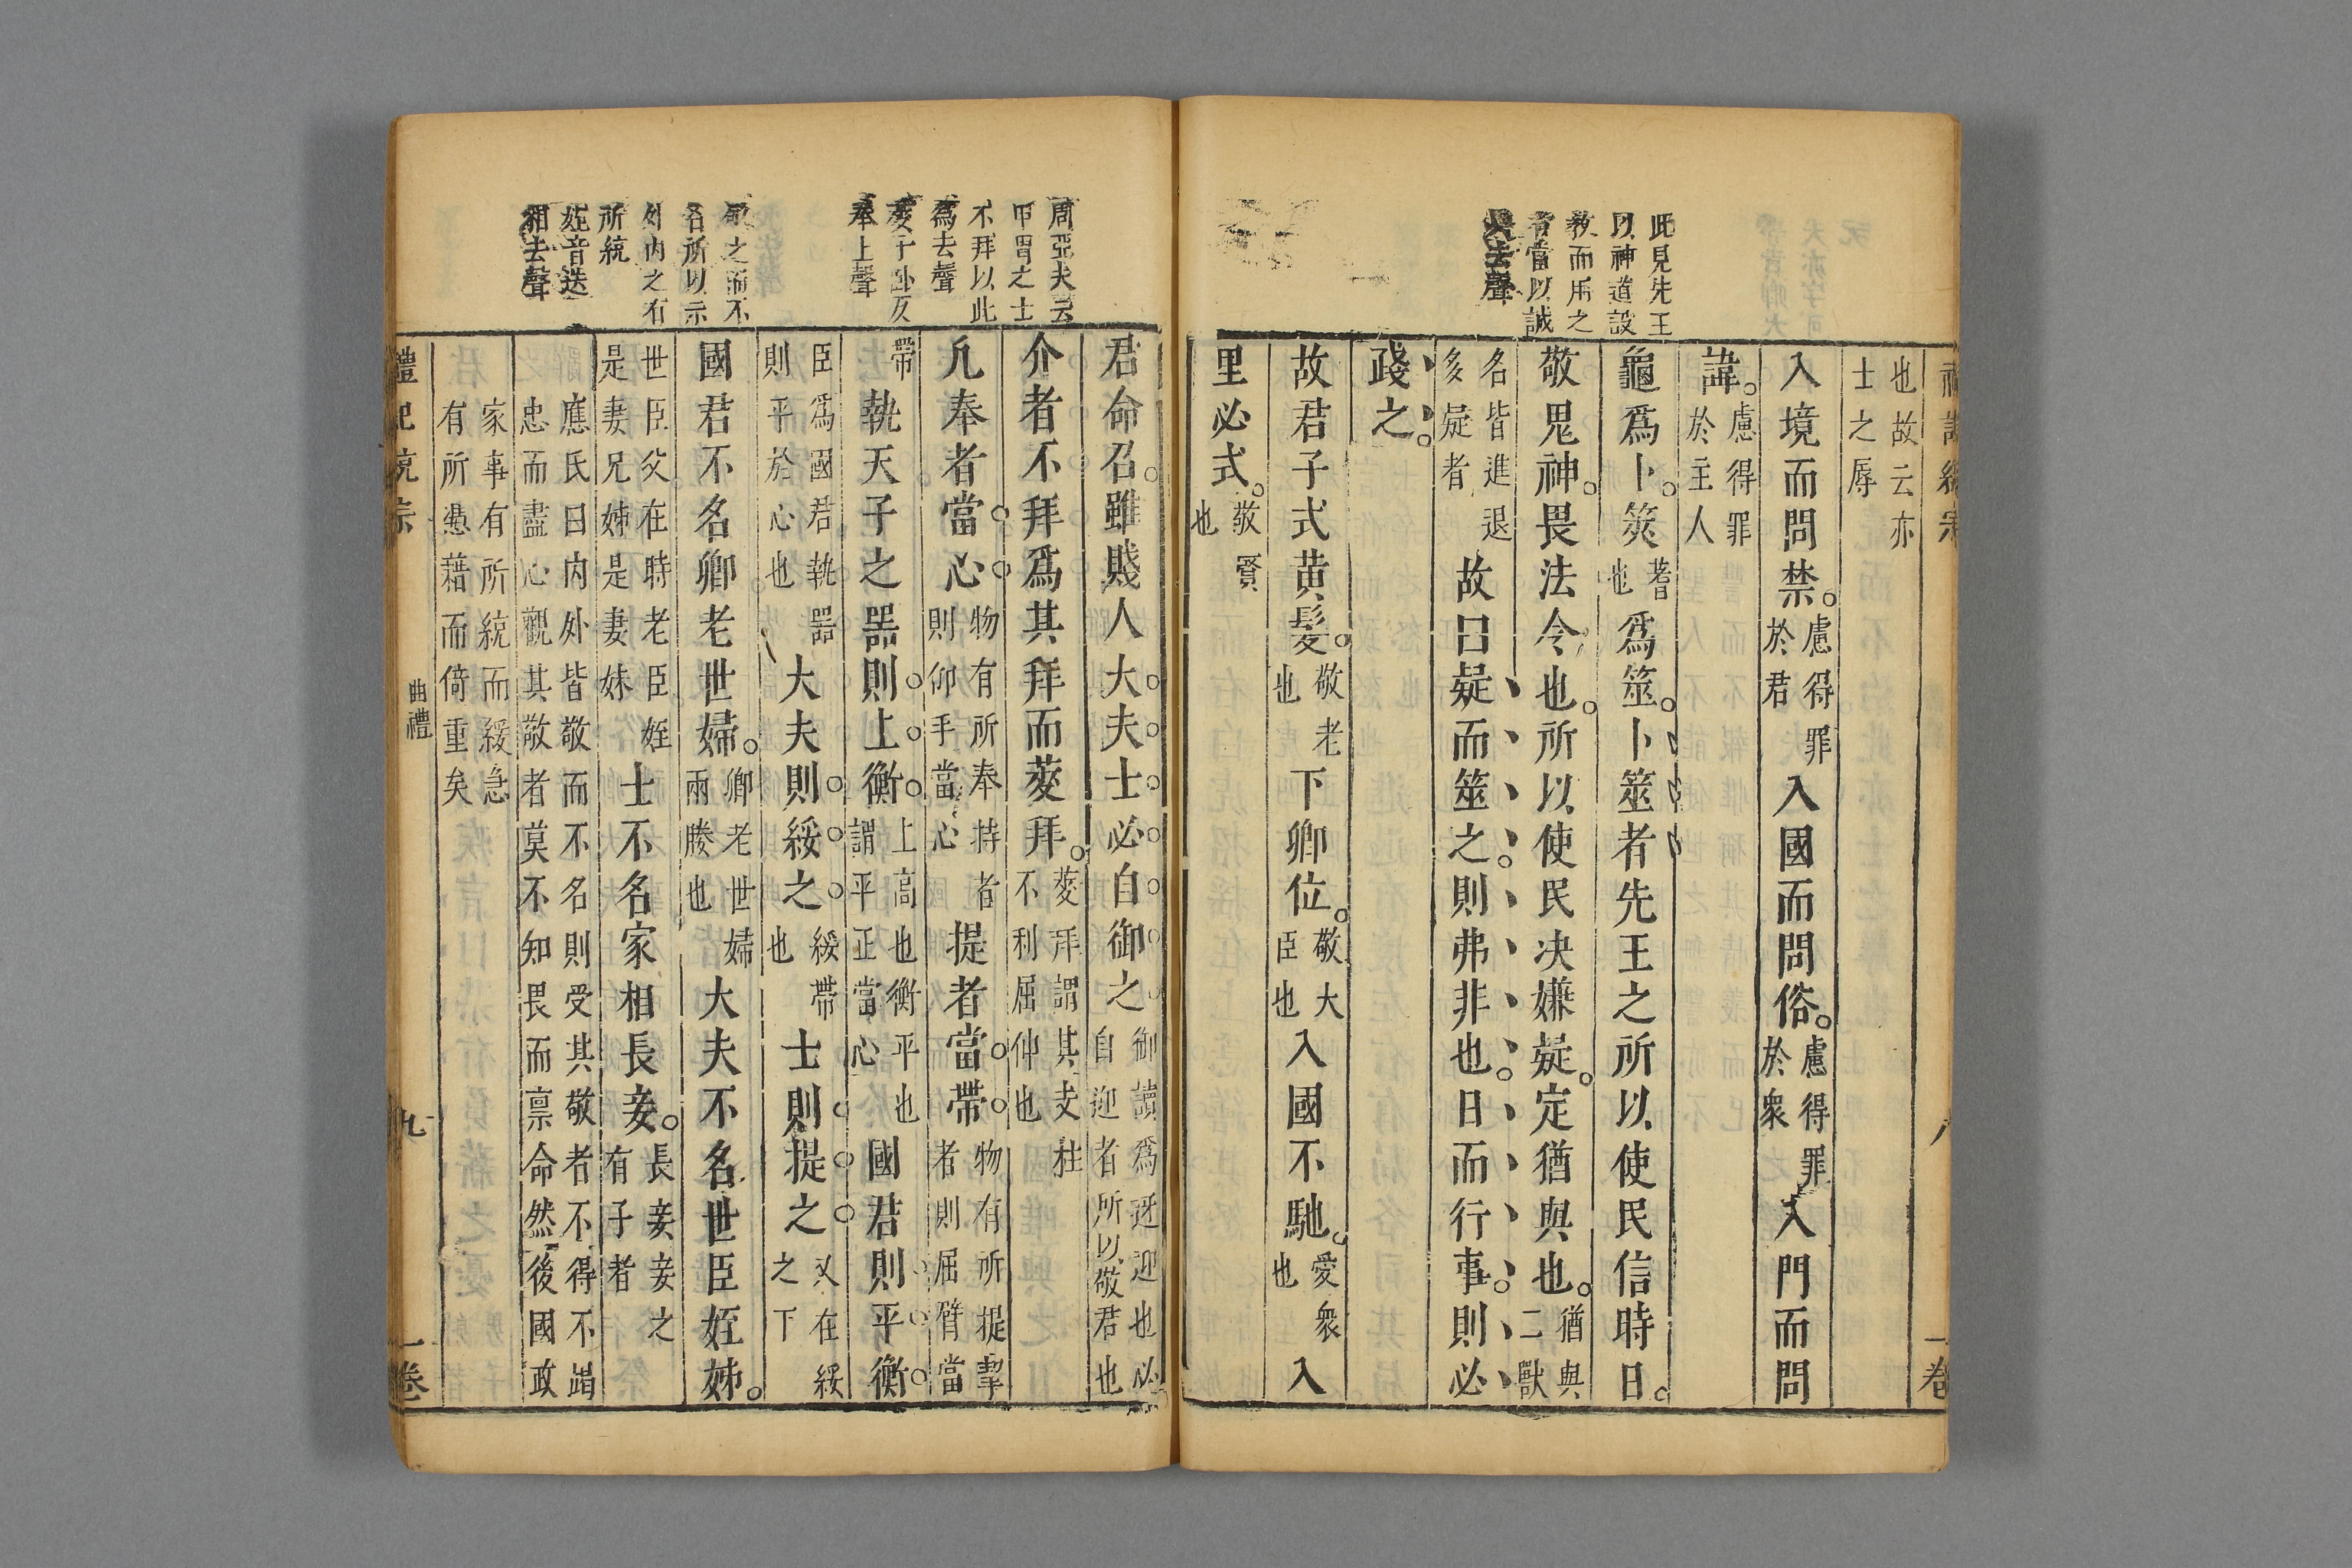 此見先王
以神道設
教而用之
者當以誠
去聲
也故云亦士之辱
入境而問禁。慮得罪於君入國而問俗。慮得罪於衆入門而問
諱。慮得罪於主人
龜爲卜。筴蓍也爲筮。卜筮者先王之所以使民信時日。
敬鬼神。畏法令也。所以使民决嫌疑。定猶與也。猶與二獸
名皆進退多疑者故曰疑而筮之。則弗非也。日而行事。則必
踐之。
故君子式黄髮。敬老也下卿位。敬大臣也入國不馳。愛衆也入
里必式。敬賢也
一卷
周亞夫云
甲冑之士
不拜以此
爲去聲
奉上聲
敬之而不
名所以示
外内之有
所統
姪音迭
相去聲
君命召。雖賤人大夫士必自御之御讀爲迓迎也必自迎者所以敬君也
介者不拜爲其拜而蓌拜。蓌拜謂其支柱不利屈伸也
凡奉者當心物有所奉持者則仰手當心提者當帶。物有所提挈者則屈臂當
帶執天子之器則上衡。上高也衡平也謂平正當心國君則平衡。
臣爲國君執器則平於心也大夫則綏之綏帶也士則提之又在綏之下
國君不名卿老世婦。卿老世婦兩媵也大夫不名世臣姪姊。
世臣父在時老臣姪是妻兄姊是妻妹士不名家相長妾。長妾妾之有子者
應氏曰内外皆敬而不名則受其敬者不得不竭忠而盡心觀其敬者莫不知畏而禀命然後國政
家事有所統而緩急有所憑藉而倚重矣
禮記統宗
曲禮
九
一卷